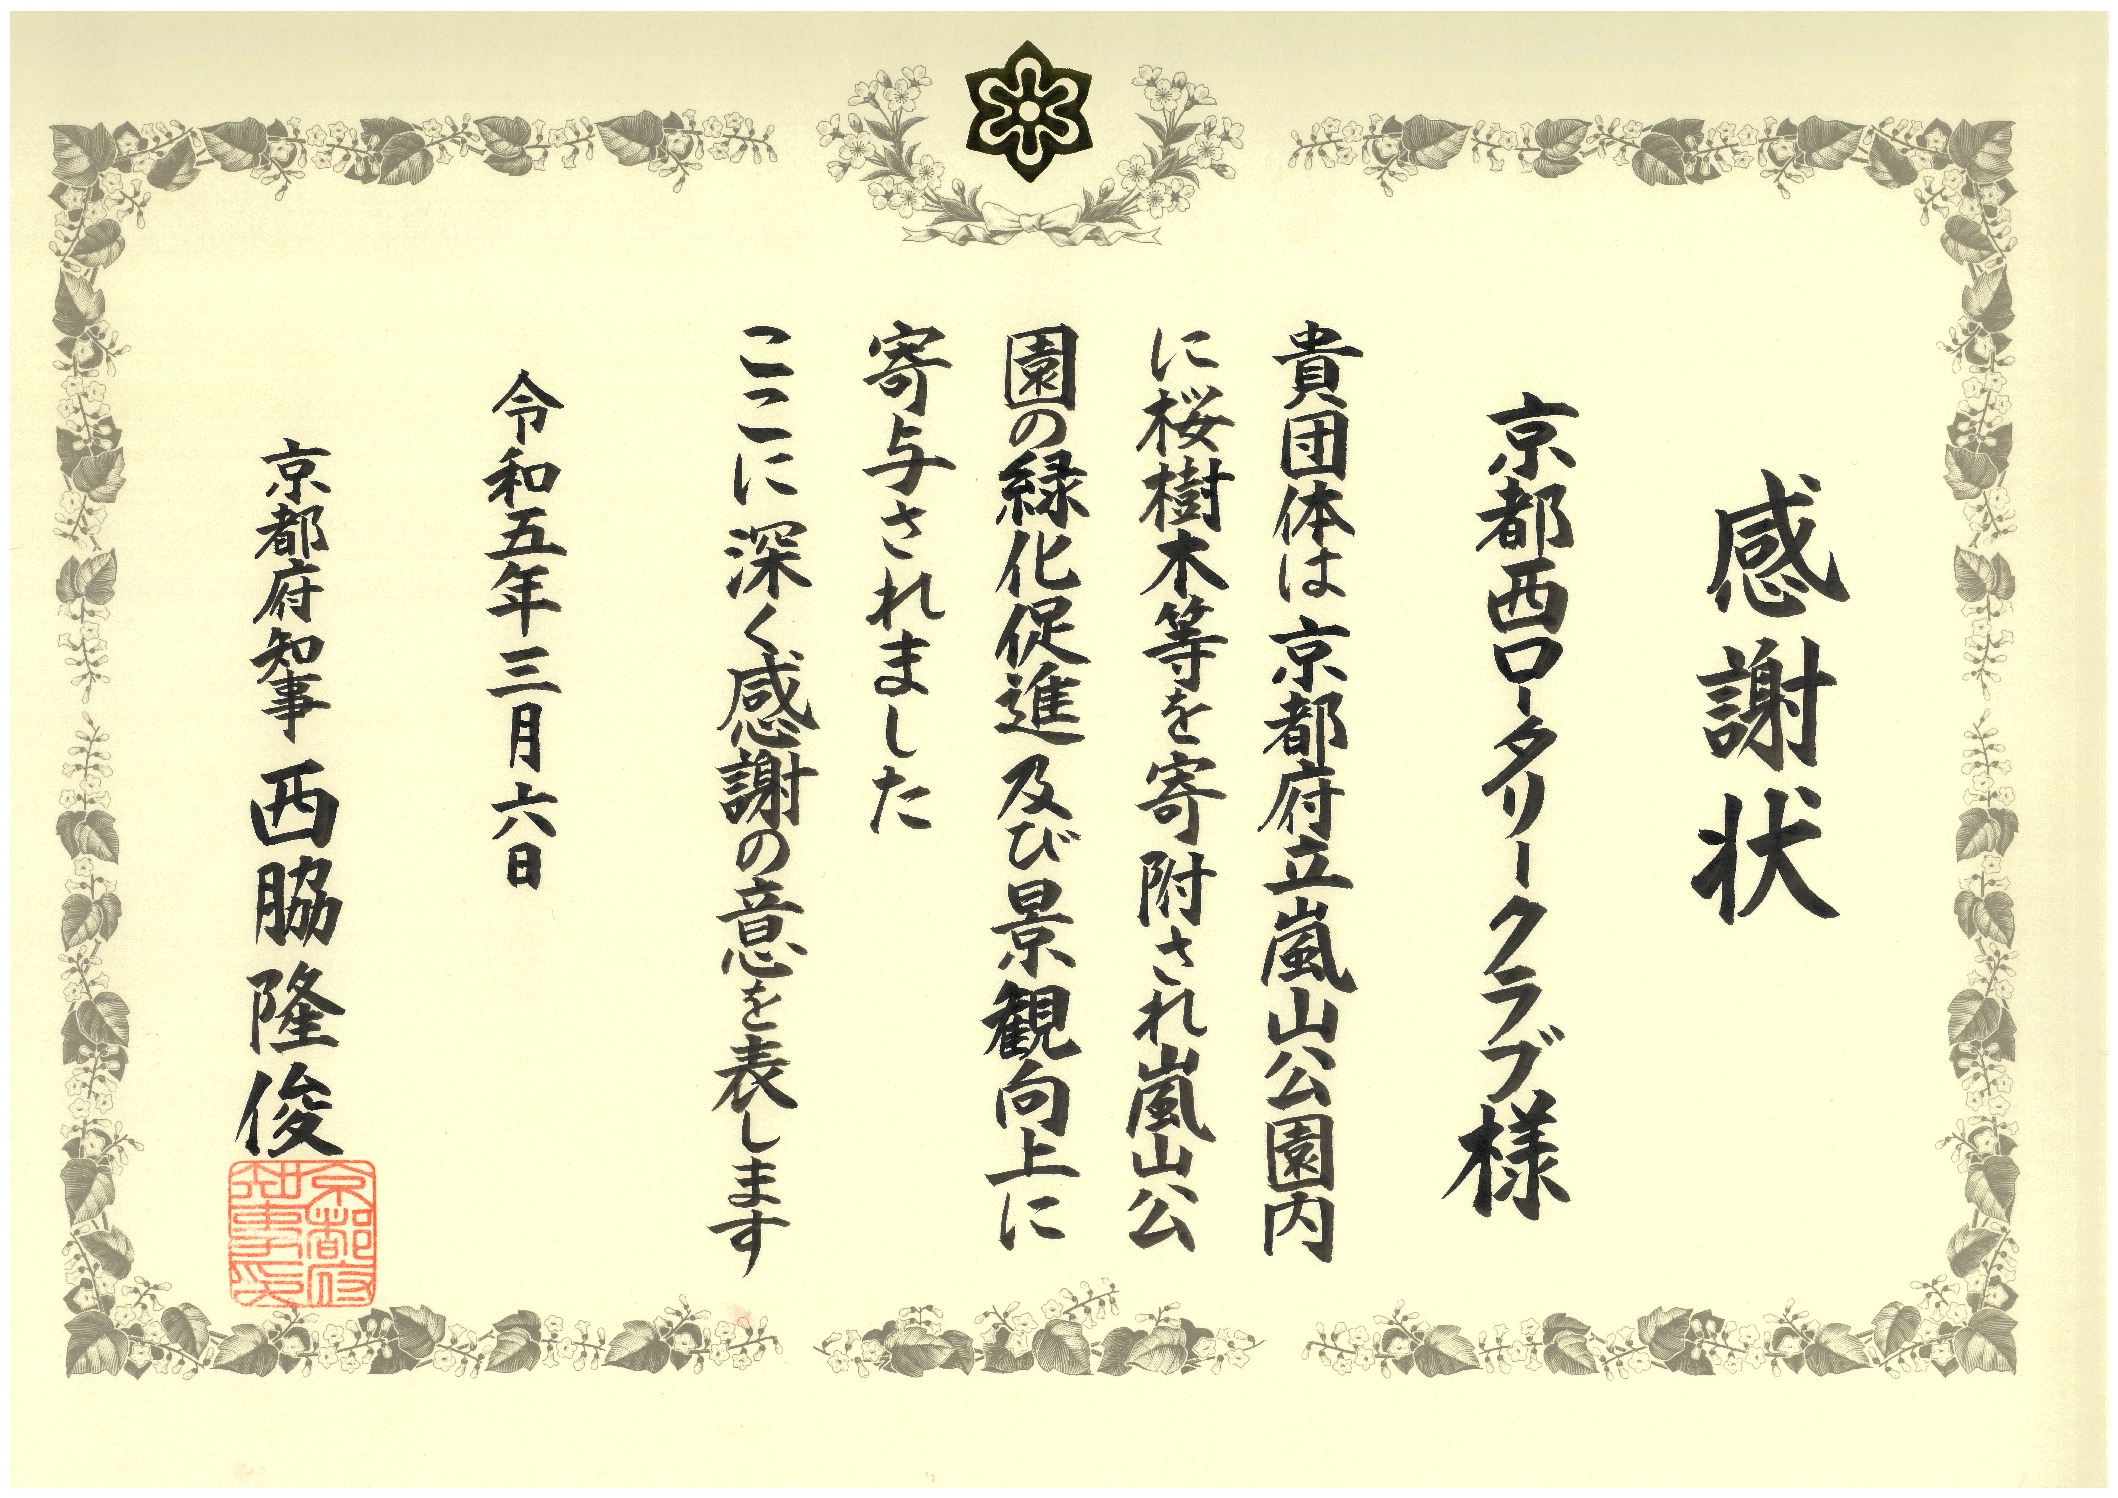 感謝状
京都西ロータリークラブ様
貴団体は京都府立嵐山公園内
に桜樹木等を寄附され嵐山公
園の緑化促進及び景観向上に
寄与されました
ここに深く感謝の意を表します
令和五年三月六日
京都府知事 西脇隆俊
京都府
知事印